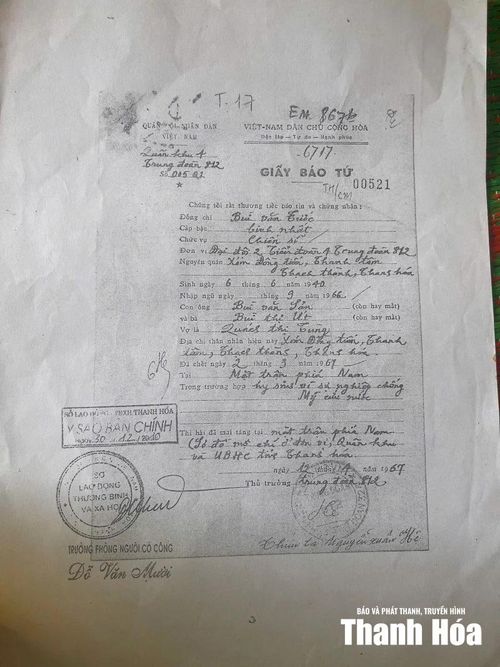 T.17
EM 867b
QUÂN ĐỘI NHÂN DÂN
VIỆT NAM
Quân khu 4
Trung đoàn 812
VIỆT-NAM DÂN CHỦ CỘNG HÒA
Độc lập — Tự do — Hạnh phúc
6717
GIẤY BÁO TỬ
00521
Chúng tôi rất thương tiếc báo tin và chứng nhận:
Đồng chí Bùi Văn Trước
Cấp bậc binh nhất
Chức vụ Chiến sĩ
Đơn vị Đại đội 2 Tiểu đoàn 4 Trung đoàn 812
Nguyên quán Xóm Đồng tiến, Thanh tâm
Thạch thành, Thanh hóa
Sinh ngày 6 tháng 6 năm 1940
Nhập ngũ ngày tháng 9 năm 1966
Con ông Bùi văn Sản (còn hay mất)
và bà Bùi thị Út (còn hay mất)
Vợ là Quách thị Tưng
Địa chỉ thân nhân hiện nay Xóm Đồng tiến, Thanh
tâm, Thạch thành, Thanh hóa
Đã chết ngày 2 tháng 3 năm 1967
Tại Mặt trận phía Nam
Trong trường hợp hy sinh vì sự nghiệp chống
Mỹ cứu nước
Thi hài đã mai táng tại mặt trận phía Nam
(Sơ đồ mộ chí ở đơn vị, Quân khu
và UBHC tỉnh Thanh hóa
ngày 12 tháng 4 năm 1967
Thủ trưởng trung đoàn 812
SỞ LAO ĐỘNG - TBXH THANH HÓA
SAO BẢN CHÍNH
Ngày 30/12/2010
SỞ
LAO ĐỘNG
THƯƠNG BINH
VÀ XÃ HỘI
TRƯỞNG PHÒNG NGƯỜI CÓ CÔNG
Đỗ Văn Mười
Thiếu tá Nguyễn Xuân Hệ
BÁO VÀ PHÁT THANH, TRUYỀN HÌNH
Thanh Hóa